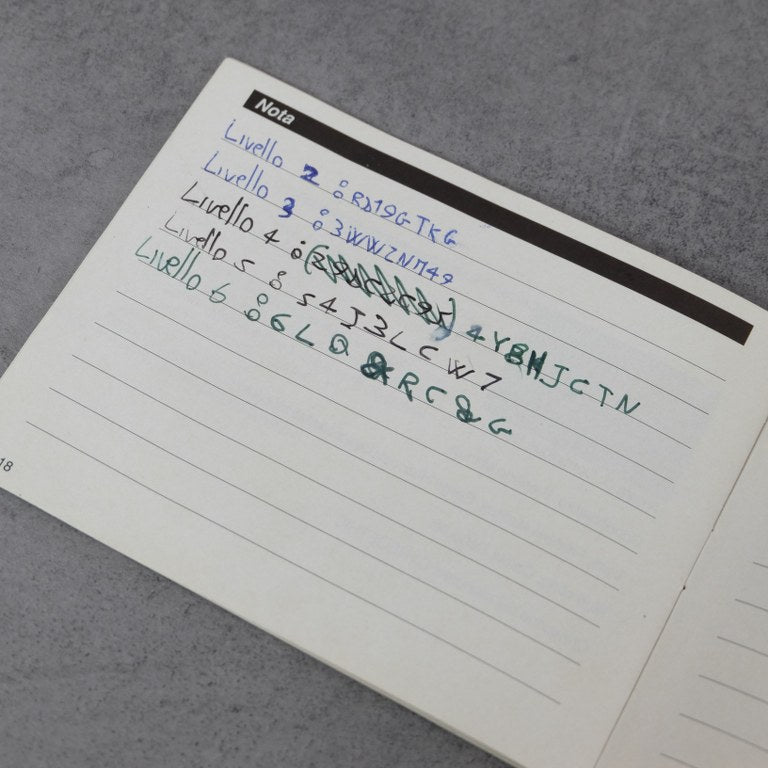 Nota
Livello 2 : RD19GTKG
Livello 3 : 3WWZN749
Livello 4 : 4YBHJCTN
Livello 5 : S4J3LCW7
Livello 6 : 6LQ&RC&G
18